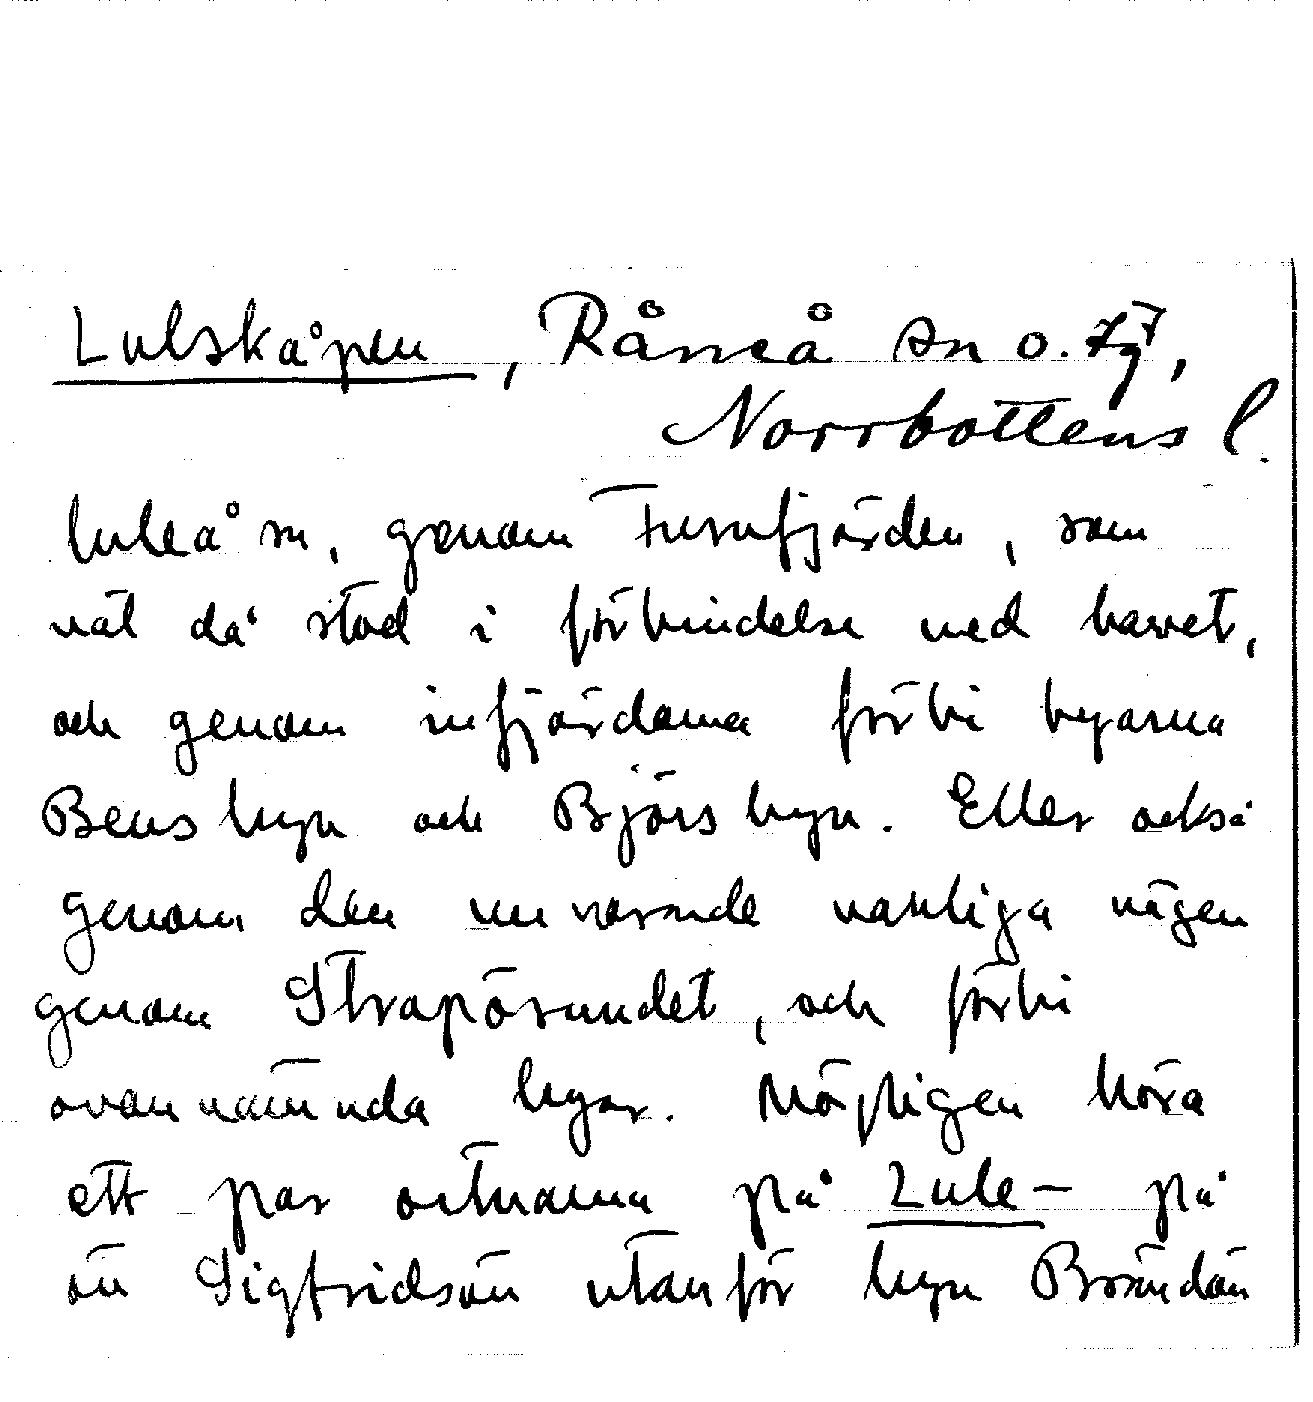 Lulskåpen, Råneå sn o. tg,
Norrbottens l.
Luleå sn, genom Furufjärden, som
väl då stod i förbindelse med havet,
och genom infjärdarna förbi byarna
Bensbyn och Björsbyn. Eller också
genom den nuvarande vanliga vägen
genom Strapösundet, och förbi
ovannämnda byar. Möjligen böra
ett par ortnamn på Lule- på
ön Sigfridsön utanför byn Brändön